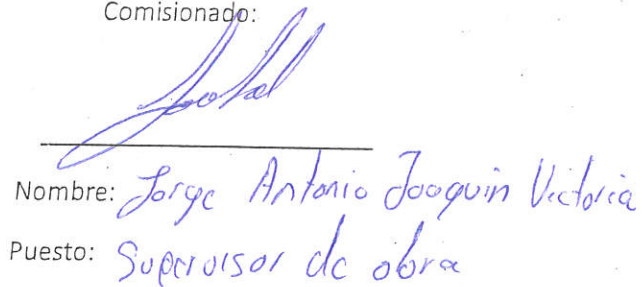 Comisionado:
Nombre: Jorge Antonio Joaquin Victoria
Puesto: Supervisor de obra